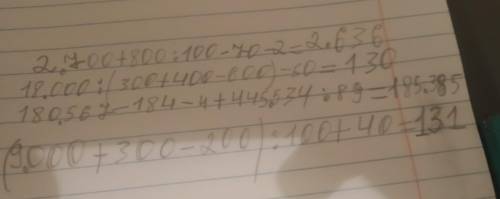 2.700+800:100-70-2=2.636
18.000:(300+400-600)-50=130
180.567-184-4+445.534:89=185.385
(9.000+300-200):100+40=131